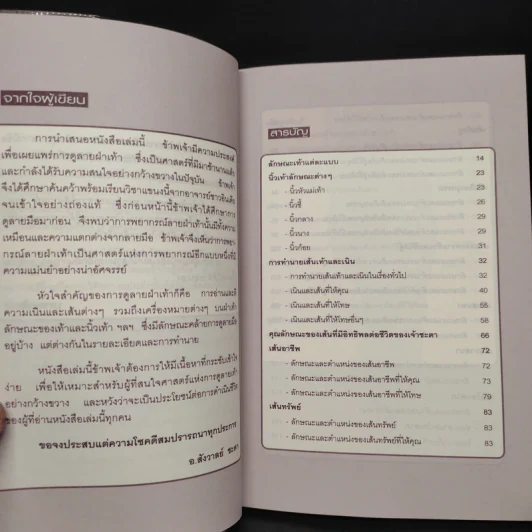 จากใจผู้เขียน
การนำเสนอหนังสือเล่มนี้ ข้าพเจ้ามีความประสงค์
เพื่อเผยแพร่การดูลายฝ่าเท้า ซึ่งเป็นศาสตร์ที่มีมาช้านานแล้ว
และกำลังได้รับความสนใจอย่างกว้างขวางในปัจจุบัน ข้าพเจ้า
จึงได้ศึกษาค้นคว้าพร้อมเรียนวิชาแขนงนี้จากอาจารย์ชาวอินเดีย
จนเข้าใจอย่างถ่องแท้ ซึ่งก่อนหน้านี้ข้าพเจ้าได้ศึกษาการ
ดูลายมือมาก่อน จึงพบว่าการพยากรณ์ลายฝ่าเท้านั้นมีทั้งความ
เหมือนและความแตกต่างจากลายมือ ข้าพเจ้าจึงเห็นว่าการพยา
กรณ์ลายฝ่าเท้าเป็นศาสตร์แห่งการพยากรณ์อีกแบบหนึ่งที่มี
ความแม่นยำอย่างน่าอัศจรรย์
หัวใจสำคัญของการดูลายฝ่าเท้าก็คือ การอ่านและตี
ความเนินและเส้นต่างๆ รวมถึงเครื่องหมายต่างๆ บนฝ่าเท้า
ลักษณะของเท้าและนิ้วเท้า ฯลฯ ซึ่งมีลักษณะคล้ายการดูลายมือ
อยู่บ้าง แต่ต่างกันในรายละเอียดและการทำนาย
หนังสือเล่มนี้ข้าพเจ้าต้องการให้มีเนื้อหาที่กระชับเข้าใจ
ง่าย เพื่อให้เหมาะสำหรับผู้ที่สนใจศาสตร์แห่งการดูลายฝ่าเท้า
อย่างกว้างขวาง และหวังว่าจะเป็นประโยชน์ต่อการดำเนินชีวิต
ของผู้ที่อ่านหนังสือเล่มนี้ทุกคน
ขอจงประสบแต่ความโชคดีสมปรารถนาทุกประการ
อ.สังวาลย์
สารบัญ
ลักษณะเท้าแต่ละแบบ 14
นิ้วเท้าลักษณะต่างๆ 23
- นิ้วหัวแม่เท้า 23
- นิ้วชี้ 25
- นิ้วกลาง 26
- นิ้วนาง 29
- นิ้วก้อย 31
การทำนายเส้นเท้าและเนิน 32
- การทำนายเส้นเท้าและเนินในเรื่องทั่วไป 32
- เนินและเส้นที่ให้คุณ 40
- เนินและเส้นที่ให้โทษ 55
- เนินและเส้นที่ให้โทษอื่นๆ 58
คุณลักษณะของเส้นที่มีอิทธิพลต่อชีวิตของเจ้าชะตา 66
เส้นอาชีพ 72
- ลักษณะและตำแหน่งของเส้นอาชีพ 72
- ลักษณะและตำแหน่งของเส้นอาชีพที่ให้คุณ 73
- ลักษณะและตำแหน่งของเส้นอาชีพที่ให้โทษ 79
เส้นทรัพย์ 83
- ลักษณะและตำแหน่งของเส้นทรัพย์ 83
- ลักษณะและตำแหน่งของเส้นทรัพย์ที่ให้คุณ 83